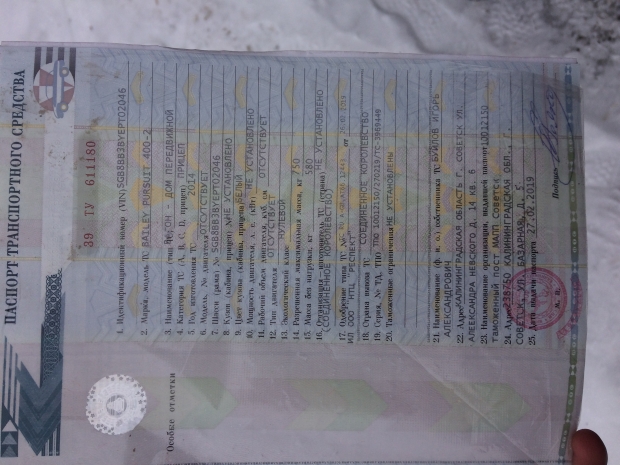 ПАСПОРТ ТРАНСПОРТНОГО СРЕДСТВА
39 ТУ 611180
1. Идентификационный номер (VIN) SGB8BB3BYEPT02046
2. Марка, модель ТС BAILEY PURSUIT 400-2
3. Наименование (тип ТС) ФУРГОН - ДОМ ПЕРЕДВИЖНОЙ
4. Категория ТС (A, B, C, D, прицеп) ПРИЦЕП
5. Год изготовления ТС 2014
6. Модель, № двигателя ОТСУТСТВУЕТ
7. Шасси (рама) № SGB8BB3BYEPT02046
8. Кузов (кабина, прицеп) № НЕ УСТАНОВЛЕНО
9. Цвет кузова (кабины, прицепа) БЕЛЫЙ
10. Мощность двигателя, л. с. (кВт) НЕ УСТАНОВЛЕНО
11. Рабочий объем двигателя, куб. см ОТСУТСТВУЕТ
12. Тип двигателя ОТСУТСТВУЕТ
13. Экологический класс НУЛЕВОЙ
14. Разрешенная максимальная масса, кг 750
15. Масса без нагрузки, кг 580
16. Организация - изготовитель ТС (страна) НЕ УСТАНОВЛЕНО
(СОЕДИНЕННОЕ КОРОЛЕВСТВО)
17. Одобрение типа ТС №
ИЛ ООО НТЦ РЕСПЕКТ
18. Страна вывоза ТС СОЕДИНЕННОЕ КОРОЛЕВСТВО
19. Серия, № ТД, ТПО ТПО 10012150/270219/ТС-
20. Таможенные ограничения НЕ УСТАНОВЛЕНЫ
21. Наименование (ф. и. о.) собственника ТС ИГОРЬ
АЛЕКСАНДРОВИЧ
22. Адрес КАЛИНИНГРАДСКАЯ ОБЛАСТЬ Г. СОВЕТСК УЛ.
АЛЕКСАНДРА НЕВСКОГО Д. 14 КВ. 6
23. Наименование организации, выдавшей паспорт 10012150
ТАМОЖЕННЫЙ ПОСТ МАПП СОВЕТСК
24. Адрес 238750 КАЛИНИНГРАДСКАЯ ОБЛ., Г.
СОВЕТСК, УЛ. БАЗАРНАЯ, Д.
25. Дата выдачи паспорта 27.02.2019
М. П.
Подпись
Особые отметки